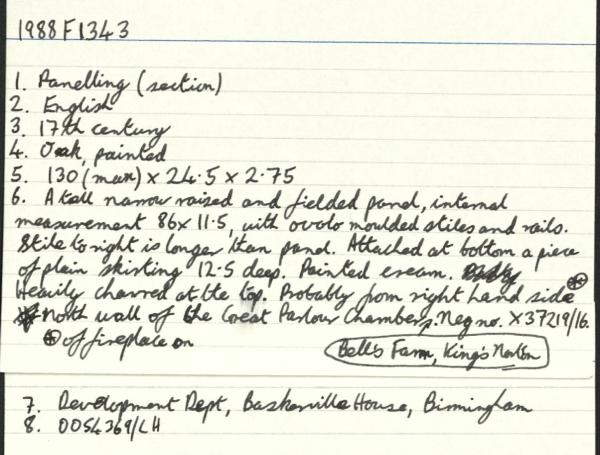 1988 F1343
1. Panelling (section)
2. English
3. 17th century
4. Oak, painted
5. 130 (max) x 24·5 x 2·75
6. A tall narrow raised and fielded panel, internal
measurement 86x 11·5, with ovolo moulded stiles and rails.
Stile to right is longer than panel. Attached at bottom a piece
of plain skirting 12·5 deep. Painted cream.
Heavily charred at the top. Probably from right hand side ⊛
North wall of the Great Parlour Chamber. Neg no. X37219/16.
⊛ of fireplace on
Bells Farm, King's Norton
7. Development Dept, Baskerville House, Birmingham
8. 00S4369/LH